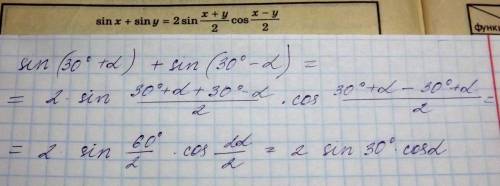 sin x + sin y = 2 sin (x + y)/2 cos (x − y)/2
функ
sin(30° + α) + sin(30° − α) =
= 2 · sin (30° + α + 30° − α)/2 · cos (30° + α − 30° + α)/2 =
= 2 · sin 60°/2 · cos 2α/2 = 2 sin 30° · cosα